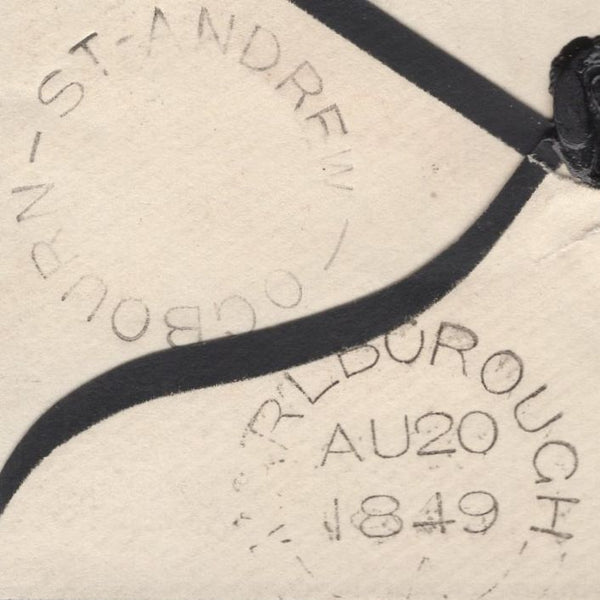 OGBOURN-ST-ANDREW
MARLBOROUGH
AU20
1849